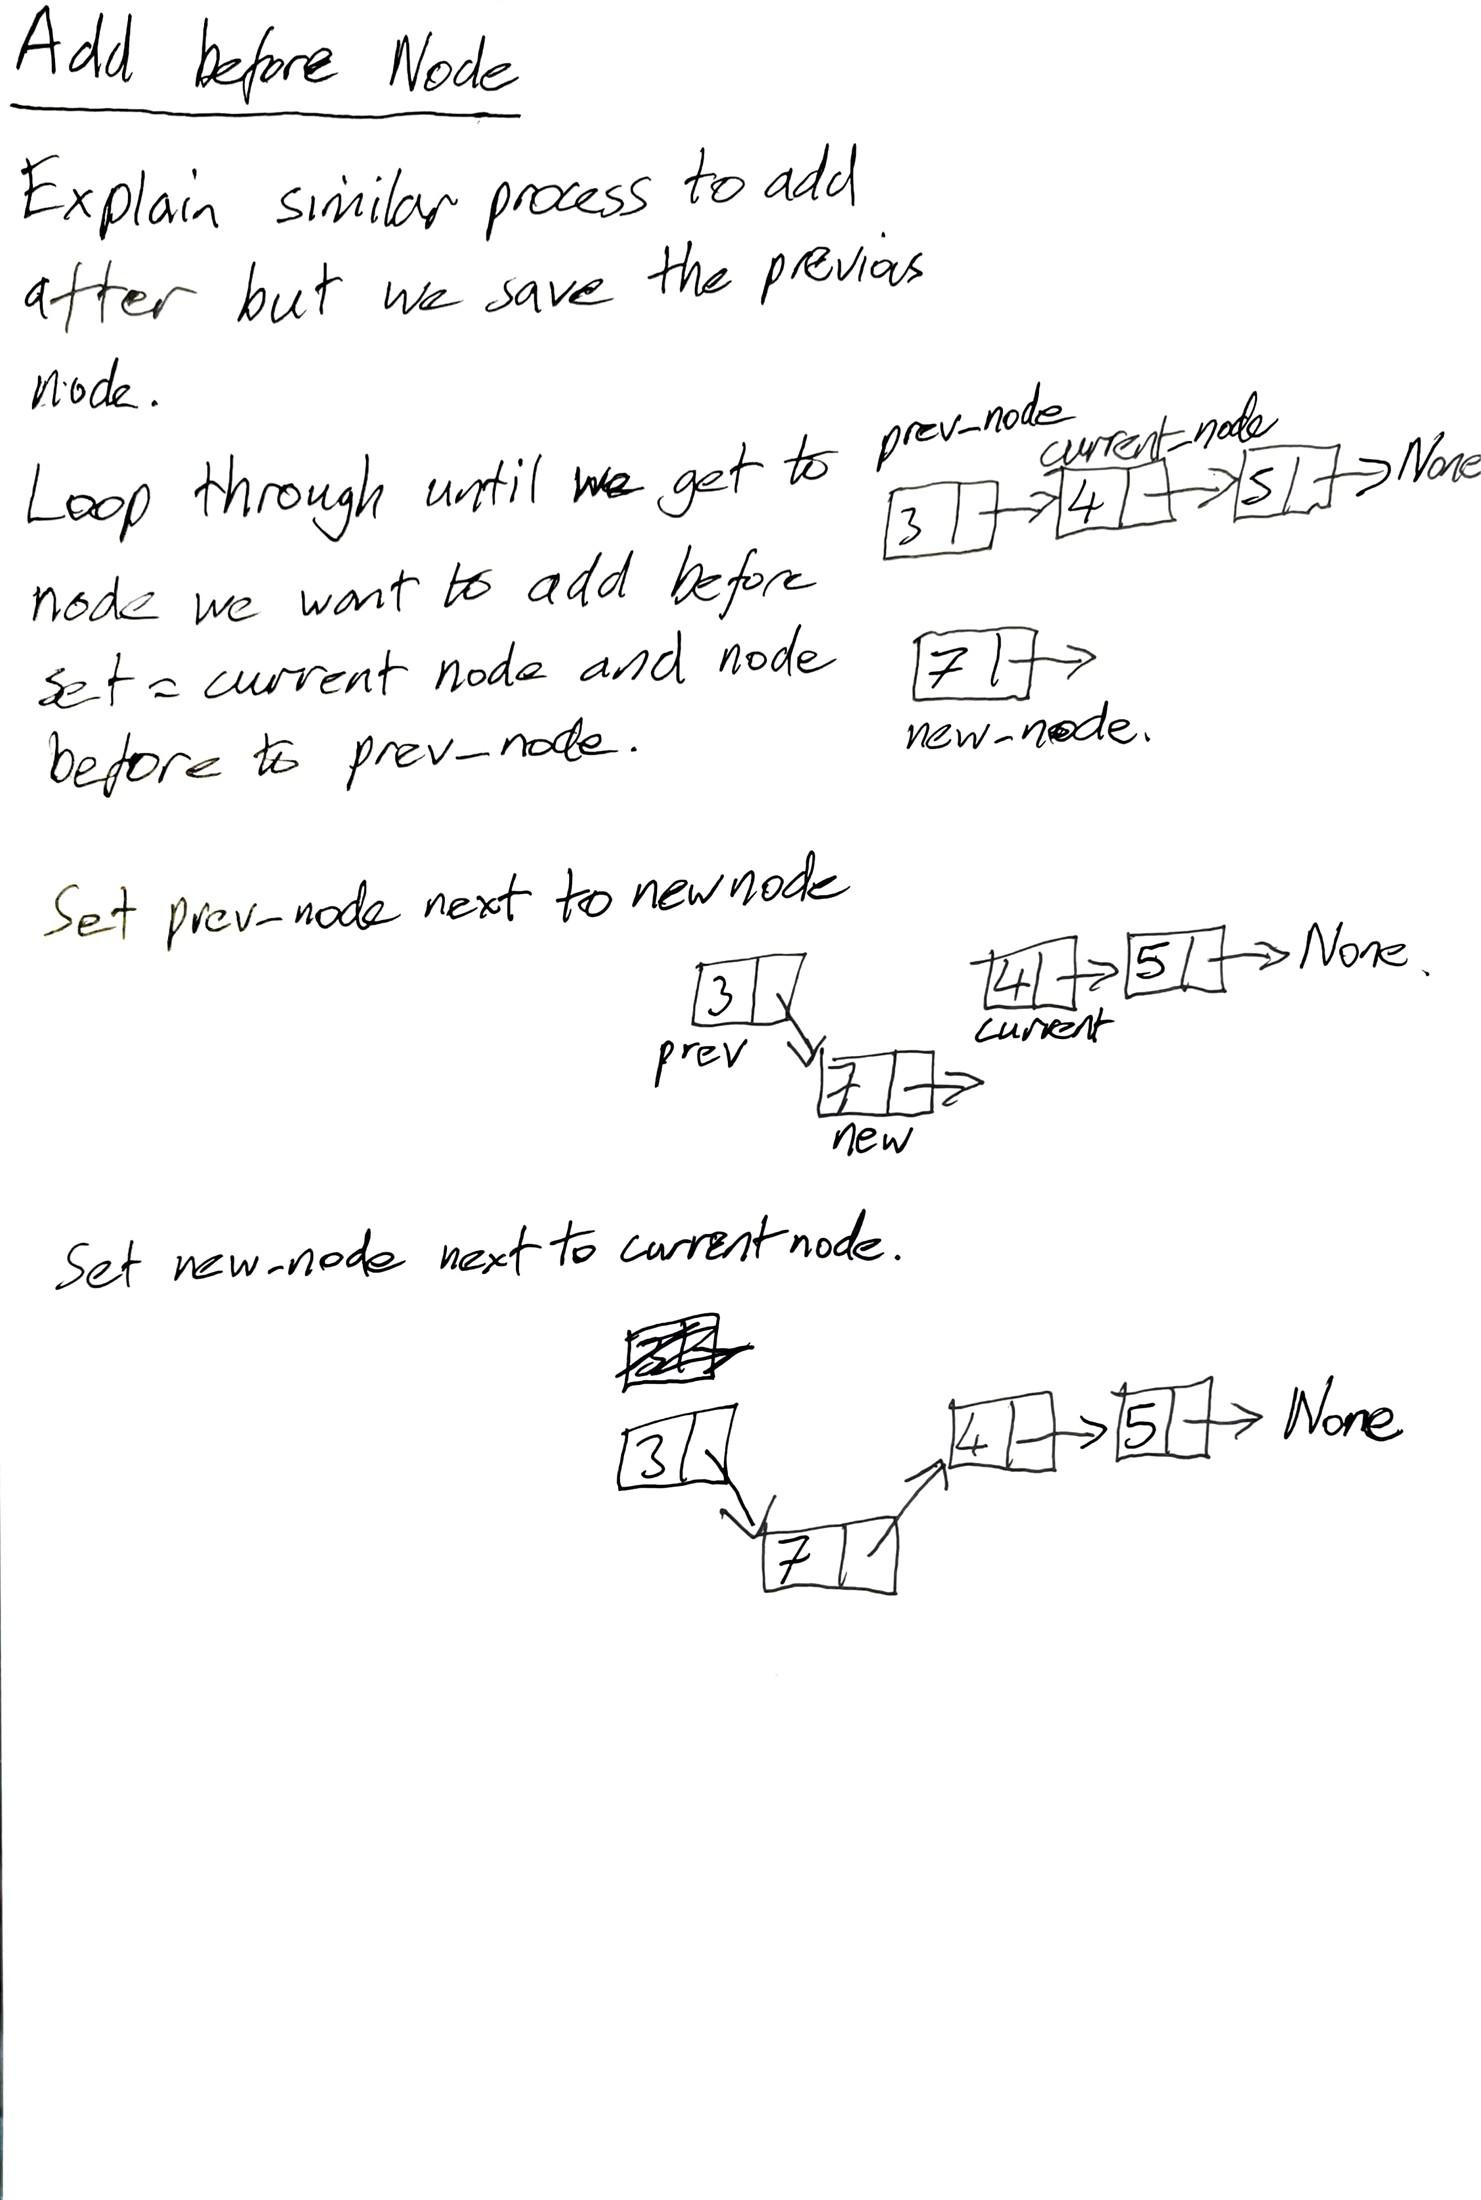 Add before Node
Explain similar process to add
after but we save the previous
node.
Loop through until we get to
node we want to add before
set = current node and node
before to prev_node.
prev_node
current_node
3 4 5 None
7
new_node.
Set prev_node next to new node
3 4 5 None.
prev current
7
new
Set new_node next to current node.
3 4 5 None
7